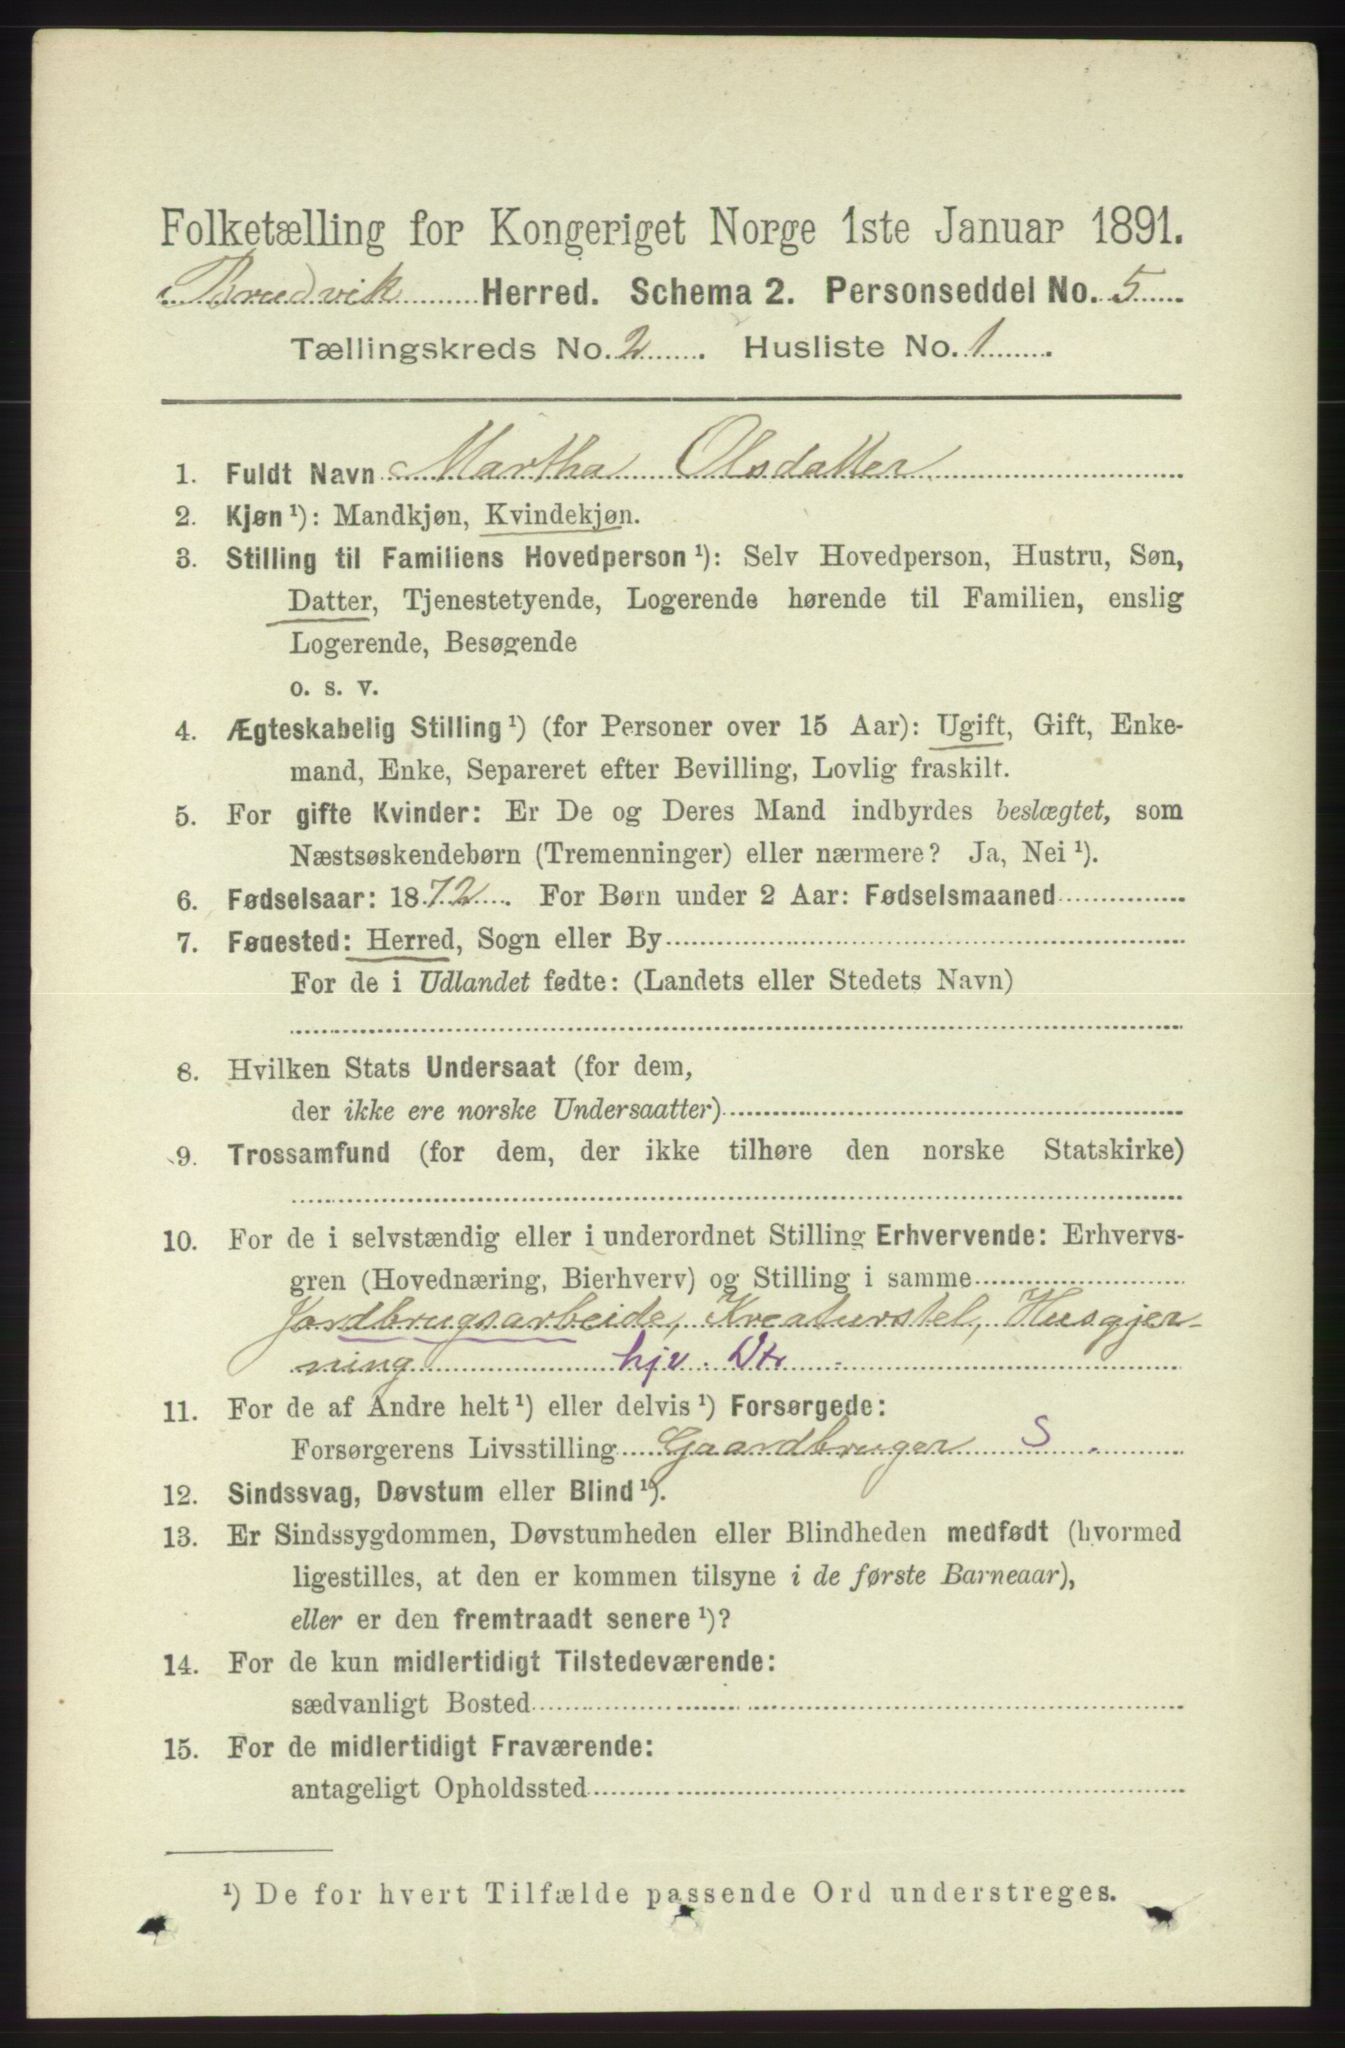 Folketælling for Kongeriget Norge 1ste Januar 1891.
Bruvik Herred. Schema 2. Personseddel No. 5
Tællingskreds No. 2. Husliste No. 1.
1. Fuldt Navn Martha Olsdatter
2. Kjøn ¹): Mandkjøn, Kvindekjøn.
3. Stilling til Familiens Hovedperson ¹): Selv Hovedperson, Hustru, Søn,
Datter, Tjenestetyende, Logerende hørende til Familien, enslig
Logerende, Besøgende
o. s. v.
4. Ægteskabelig Stilling ¹) (for Personer over 15 Aar): Ugift, Gift, Enke-
mand, Enke, Separeret efter Bevilling, Lovlig fraskilt.
5. For gifte Kvinder: Er De og Deres Mand indbyrdes beslægtet, som
Næstsøskendebørn (Tremenninger) eller nærmere? Ja, Nei ¹).
6. Fødselsaar: 1872. For Børn under 2 Aar: Fødselsmaaned
7. Fødested: Herred, Sogn eller By
For de i Udlandet fødte: (Landets eller Stedets Navn)
8. Hvilken Stats Undersaat (for dem,
der ikke ere norske Undersaatter)
9. Trossamfund (for dem, der ikke tilhøre den norske Statskirke)
10. For de i selvstændig eller i underordnet Stilling Erhvervende: Erhvervs-
gren (Hovednæring, Bierhverv) og Stilling i samme
Jordbrugsarbeide, Kreaturstel, Husgjer-
ning hjv. Dtr
11. For de af Andre helt ¹) eller delvis ¹) Forsørgede:
Forsørgerens Livsstilling Gaardbruger S.
12. Sindssvag, Døvstum eller Blind ¹).
13. Er Sindssygdommen, Døvstumheden eller Blindheden medfødt (hvormed
ligestilles, at den er kommen tilsyne i de første Barneaar),
eller er den fremtraadt senere ¹)?
14. For de kun midlertidigt Tilstedeværende:
sædvanligt Bosted
15. For de midlertidigt Fraværende:
antageligt Opholdssted
¹) De for hvert Tilfælde passende Ord understreges.